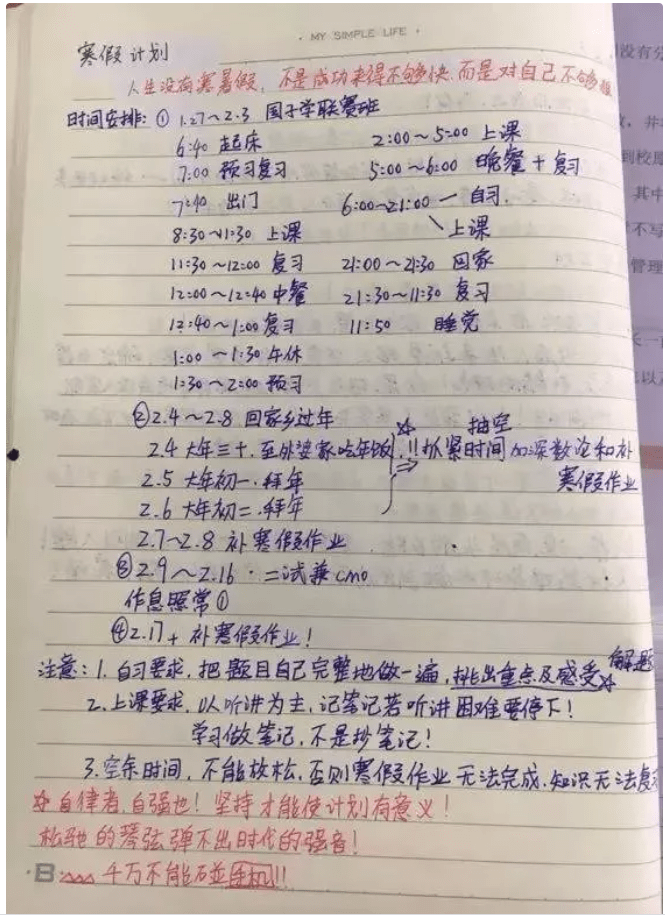 · MY SIMPLE LIFE ·
寒假计划
人生没有寒暑假，不是成功来得不够快，而是对自己不够狠
时间安排：① 1.27～2.3 国子学联赛班
6:40 起床 2:00～5:00 上课
7:00 预习复习 5:00～6:00 晚餐＋复习
7:40 出门 6:00~21:00 一 自习.
8:30~11:30 上课 ＼上课
11:30～12:00 复习 21:00～21:30 回家
12:00～12:40 中餐 21:30～11:30 复习
12:40～1:00 复习 11:50 睡觉
1:00～1:30 午休
1:30～2:00 预习
②2.4～2.8 回家乡过年
2.4 大年三十.至外婆家吃年饭 !!抓紧时间加深数论和补
抽空
2.5 大年初一.拜年 寒假作业
2.6 大年初二.拜年
2.7～2.8 补寒假作业
③2.9～2.16 · 二试兼CMO
作息照常①
④2.17+ 补寒假作业！
注意：1. 自习要求，把题目自己完整地做一遍，挑出重点及感受☆解题
2. 上课要求，以听讲为主，记笔记若听讲困难要停下！
学习做笔记，不是抄笔记！
3. 空余时间，不能放松，否则寒假作业无法完成.知识无法复
☆自律者，自强也！坚持才能使计划有意义！
松驰的琴弦弹不出时代的强音！
·B· 千万不能碰手机!!
没有分
到校
其中
不写
管理
以